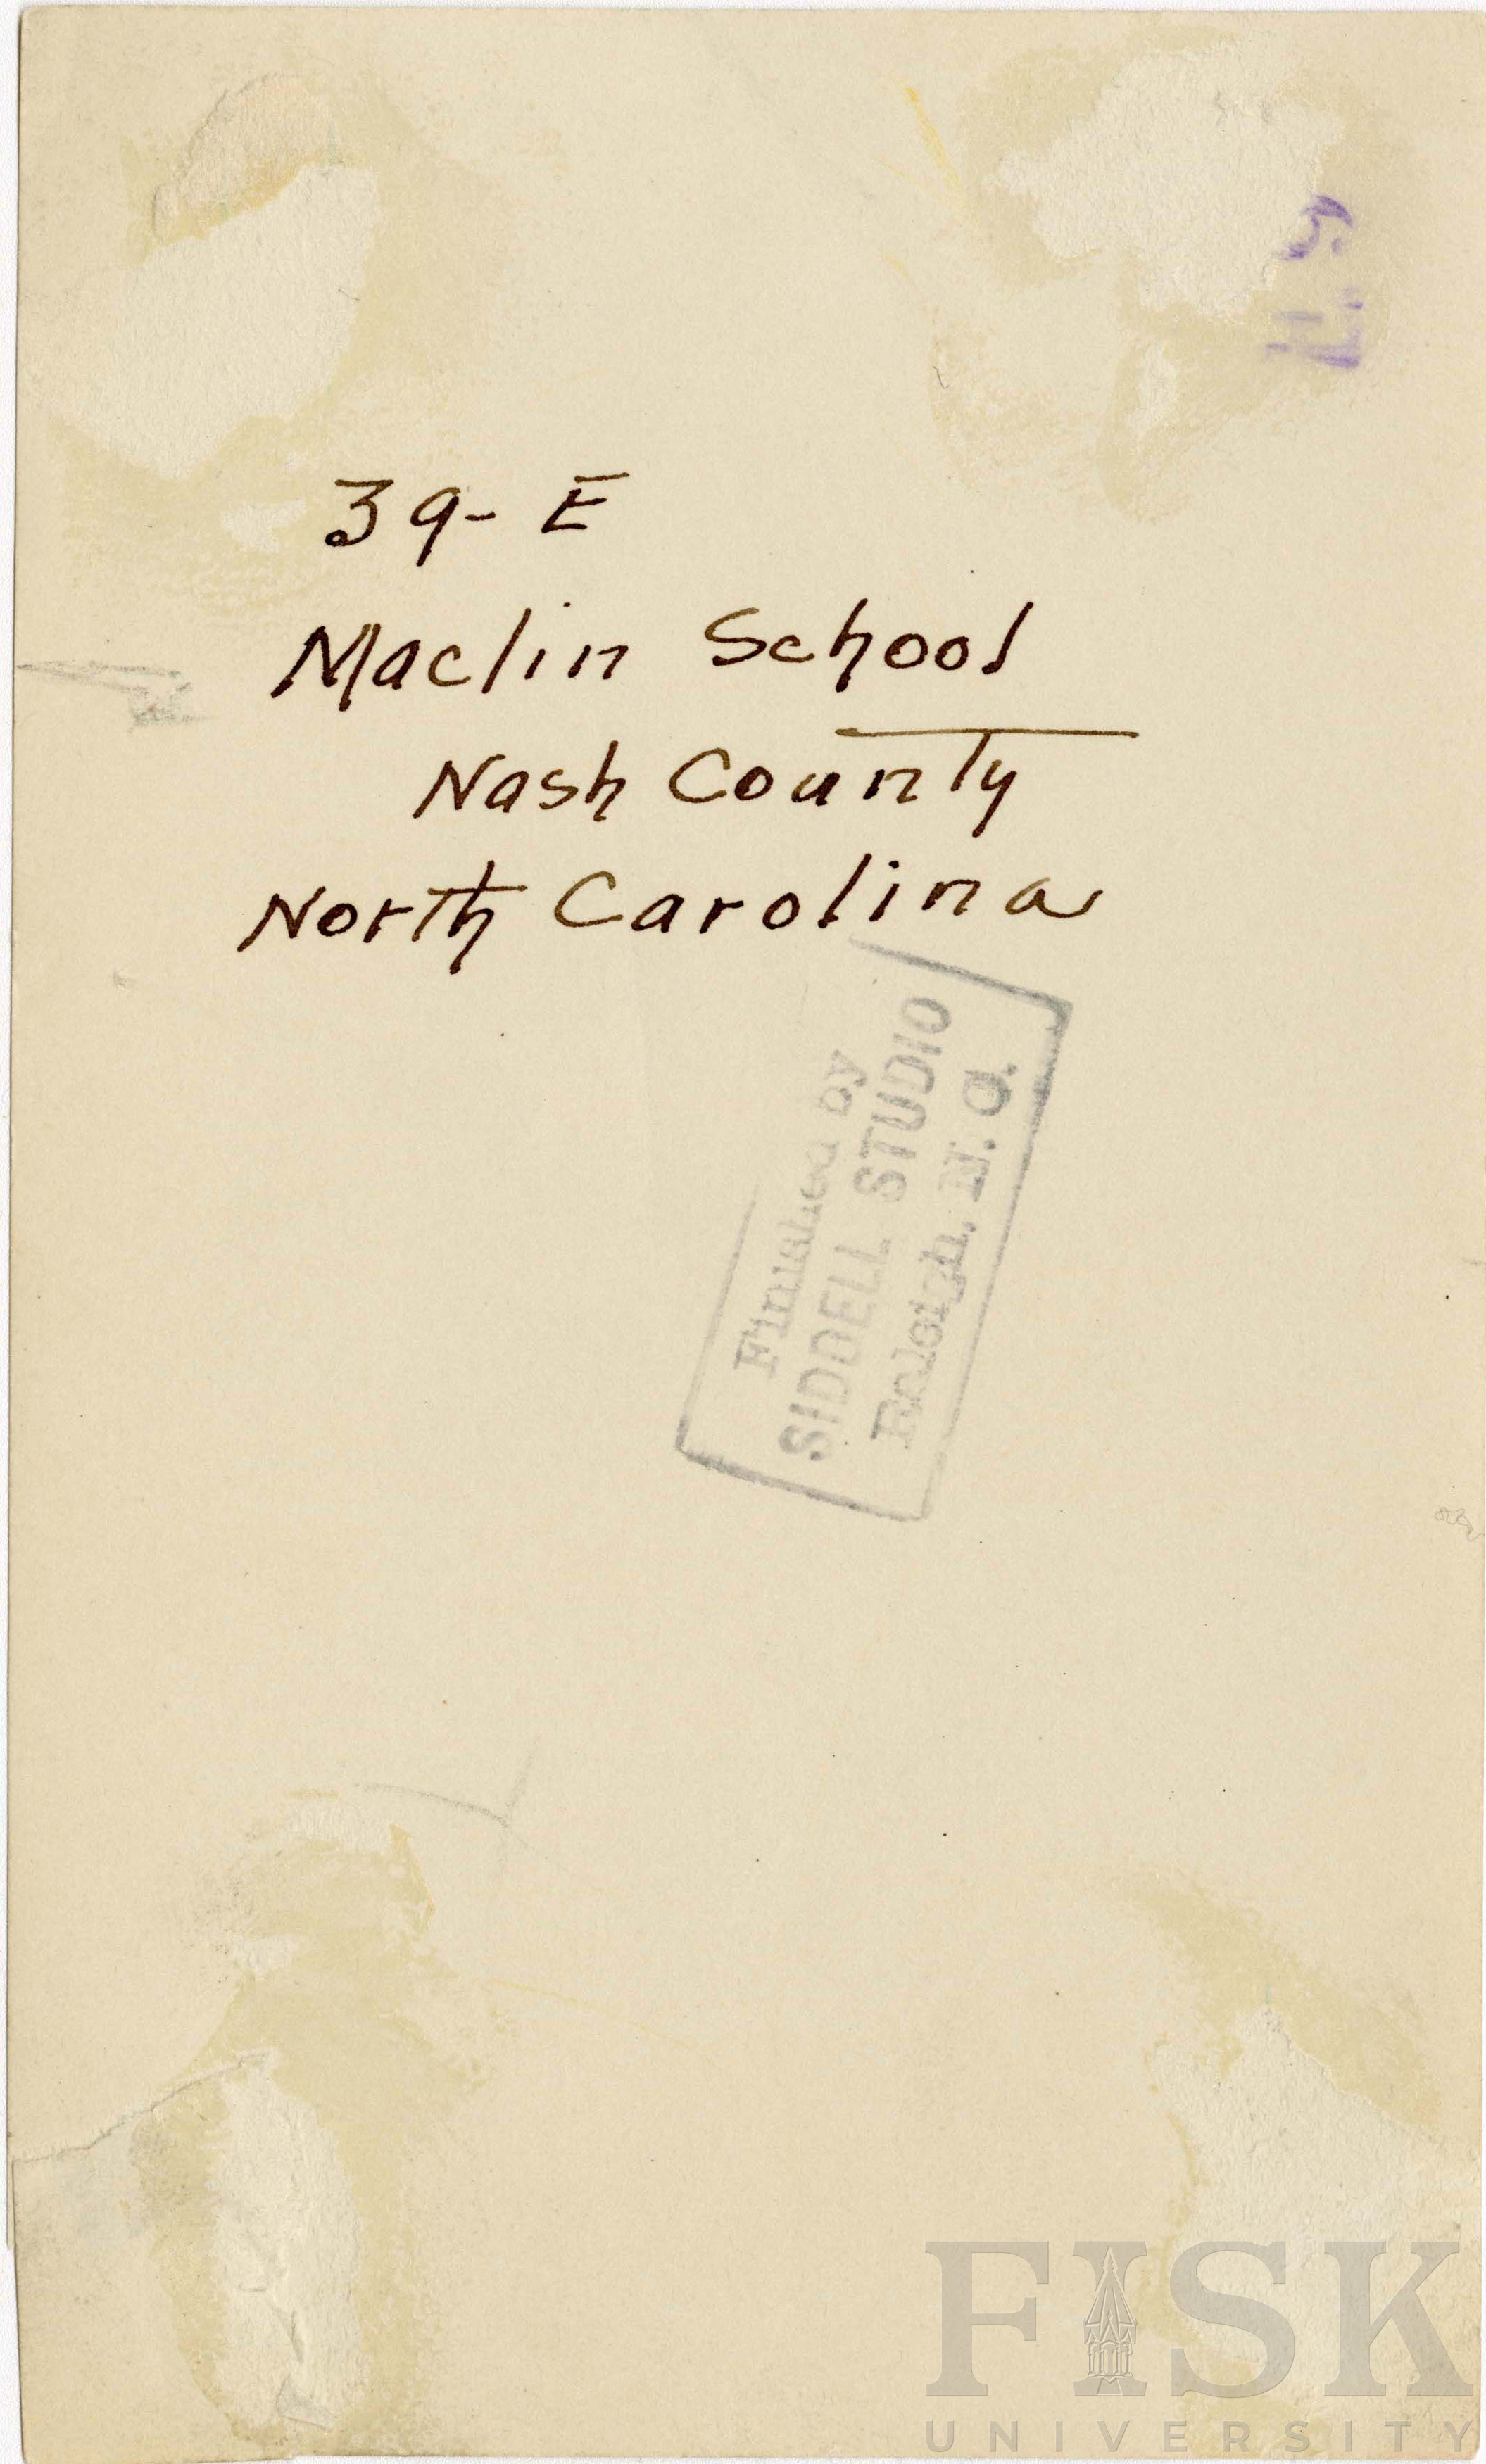 39-E
Maclin School
Nash County
North Carolina
Finished by
SIDDELL STUDIO
Raleigh, N. C.
FISK
UNIVERSITY